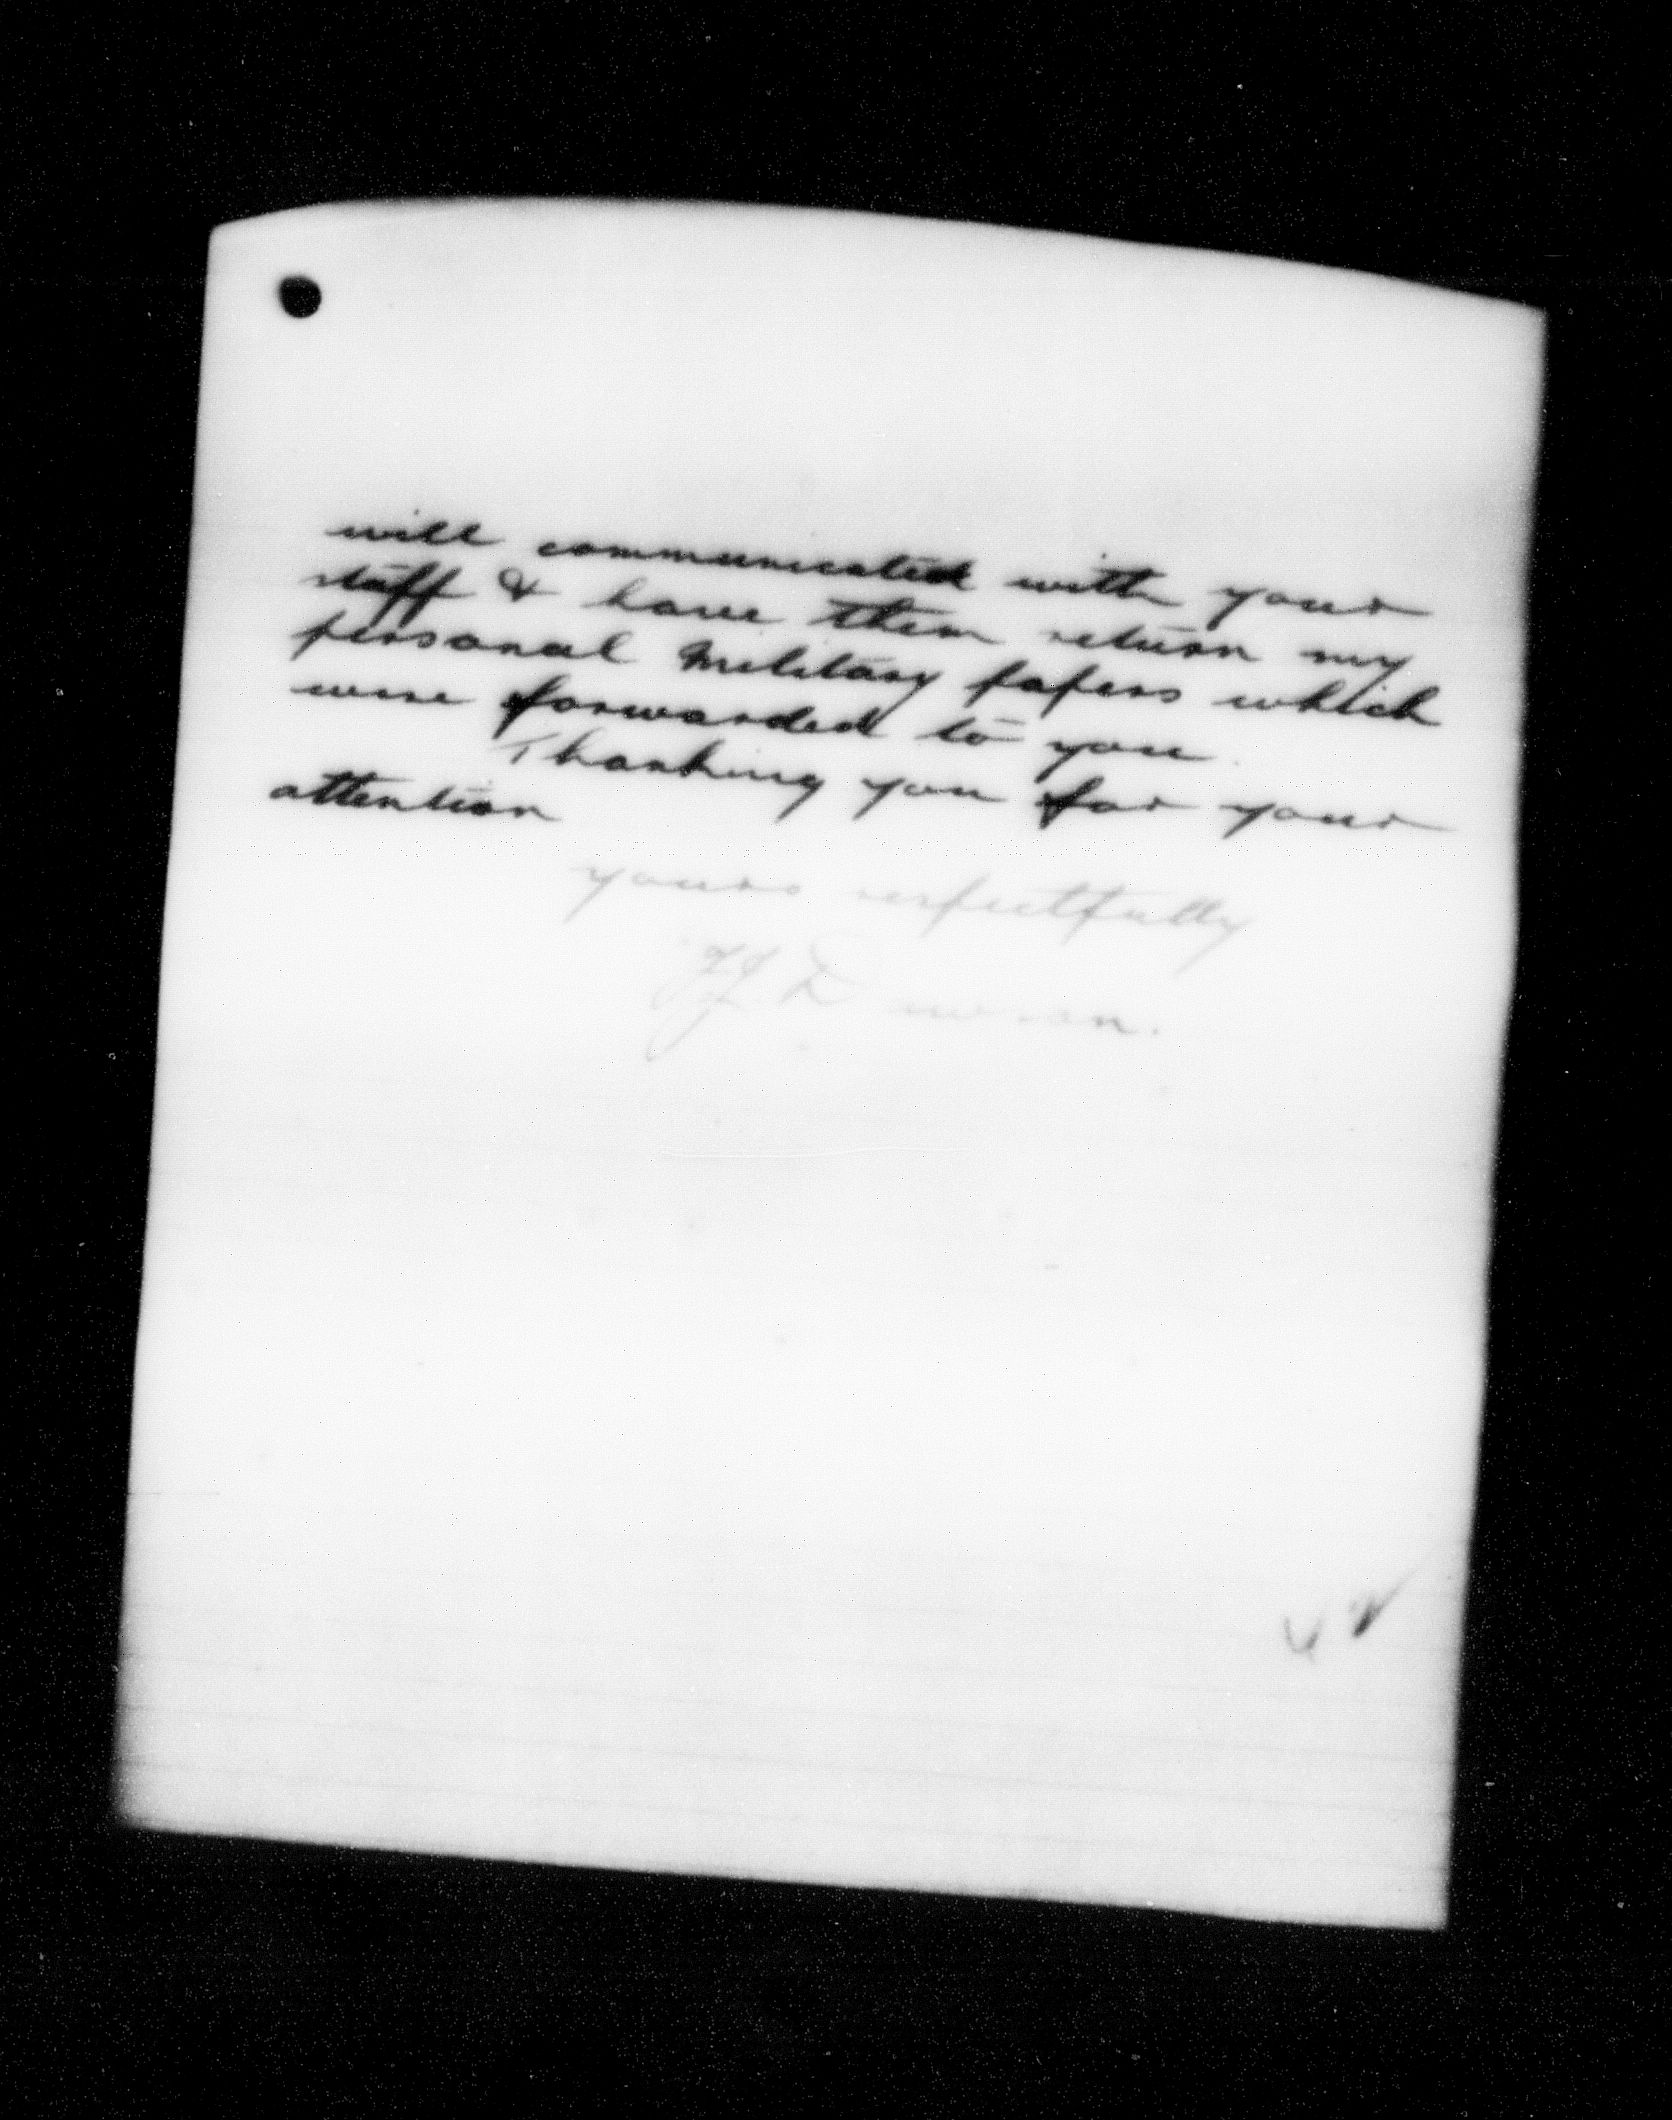 will communicated with your
staff & have them return my
personal Military papers which
were forwarded to you.
Thanking you for your
attention
yours respectfully